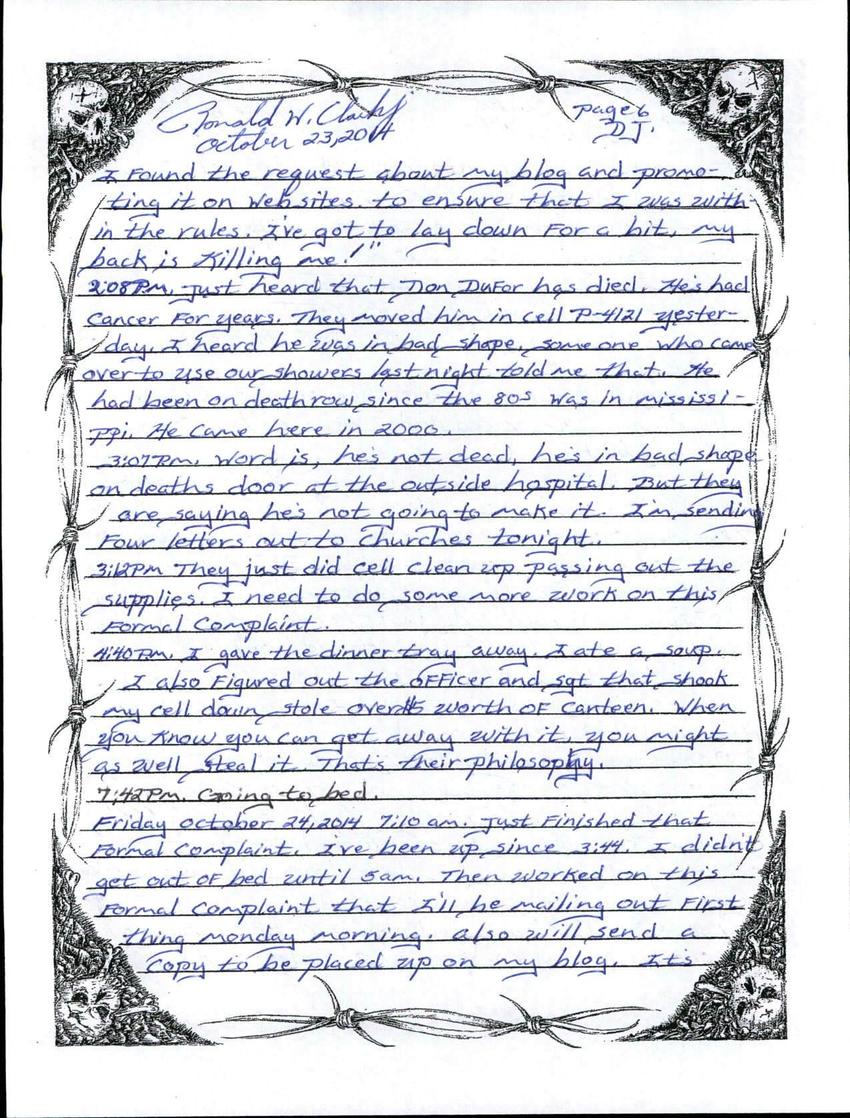 Ronald W. Clark Jr
October 23, 2014
page 6
DJ.
I Found the request about my blog and promo-
ting it on websites. to ensure that I was with-
in the rules. I've got to lay down For a bit, my
back is Killing me!"
2:08P.m. Just heard that Don DuFor has died. He's had
Cancer For years. They moved him in cell P-4121 yester-
day. I heard he was in bad shape. some one who came
over to use our showers last night told me that. He
had been on deathrow since the 80s was in mississi-
ppi. He came here in 2000.
3:07Pm. Word is, he's not dead, he's in bad shape
on deaths door at the outside hospital. But they
are saying he's not going to make it. I'm sending
Four letters out to Churches tonight.
3:12Pm They just did cell clean up passing out the
supplies. I need to do some more work on this
Formal Complaint.
4:40Pm. I gave the dinner tray away. I ate a soup.
I also Figured out the oFFicer and sgt that shook
my cell down stole over $5 worth oF Canteen. When
you know you can get away with it, you might
as well steal it. That's their philosophy.
7:42Pm. Going to bed.
Friday October 24, 2014 7:10 am. Just Finished that
Formal Complaint. I've been up since 3:44. I didn't
get out oF bed until 5am. Then worked on this
Formal Complaint that I'll be mailing out First
thing monday morning. also will send a
Copy to be placed up on my blog. It's